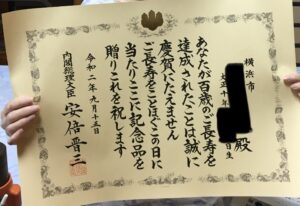 横浜市
大正十年
日生
殿
あなたが百歳のご長寿を
達成されたことは誠に
慶賀にたえません
ご長寿をことほぐこの日に
当たりここに記念品を
贈りこれを祝します
令和二年九月十五日
内閣総理大臣 安倍晋三